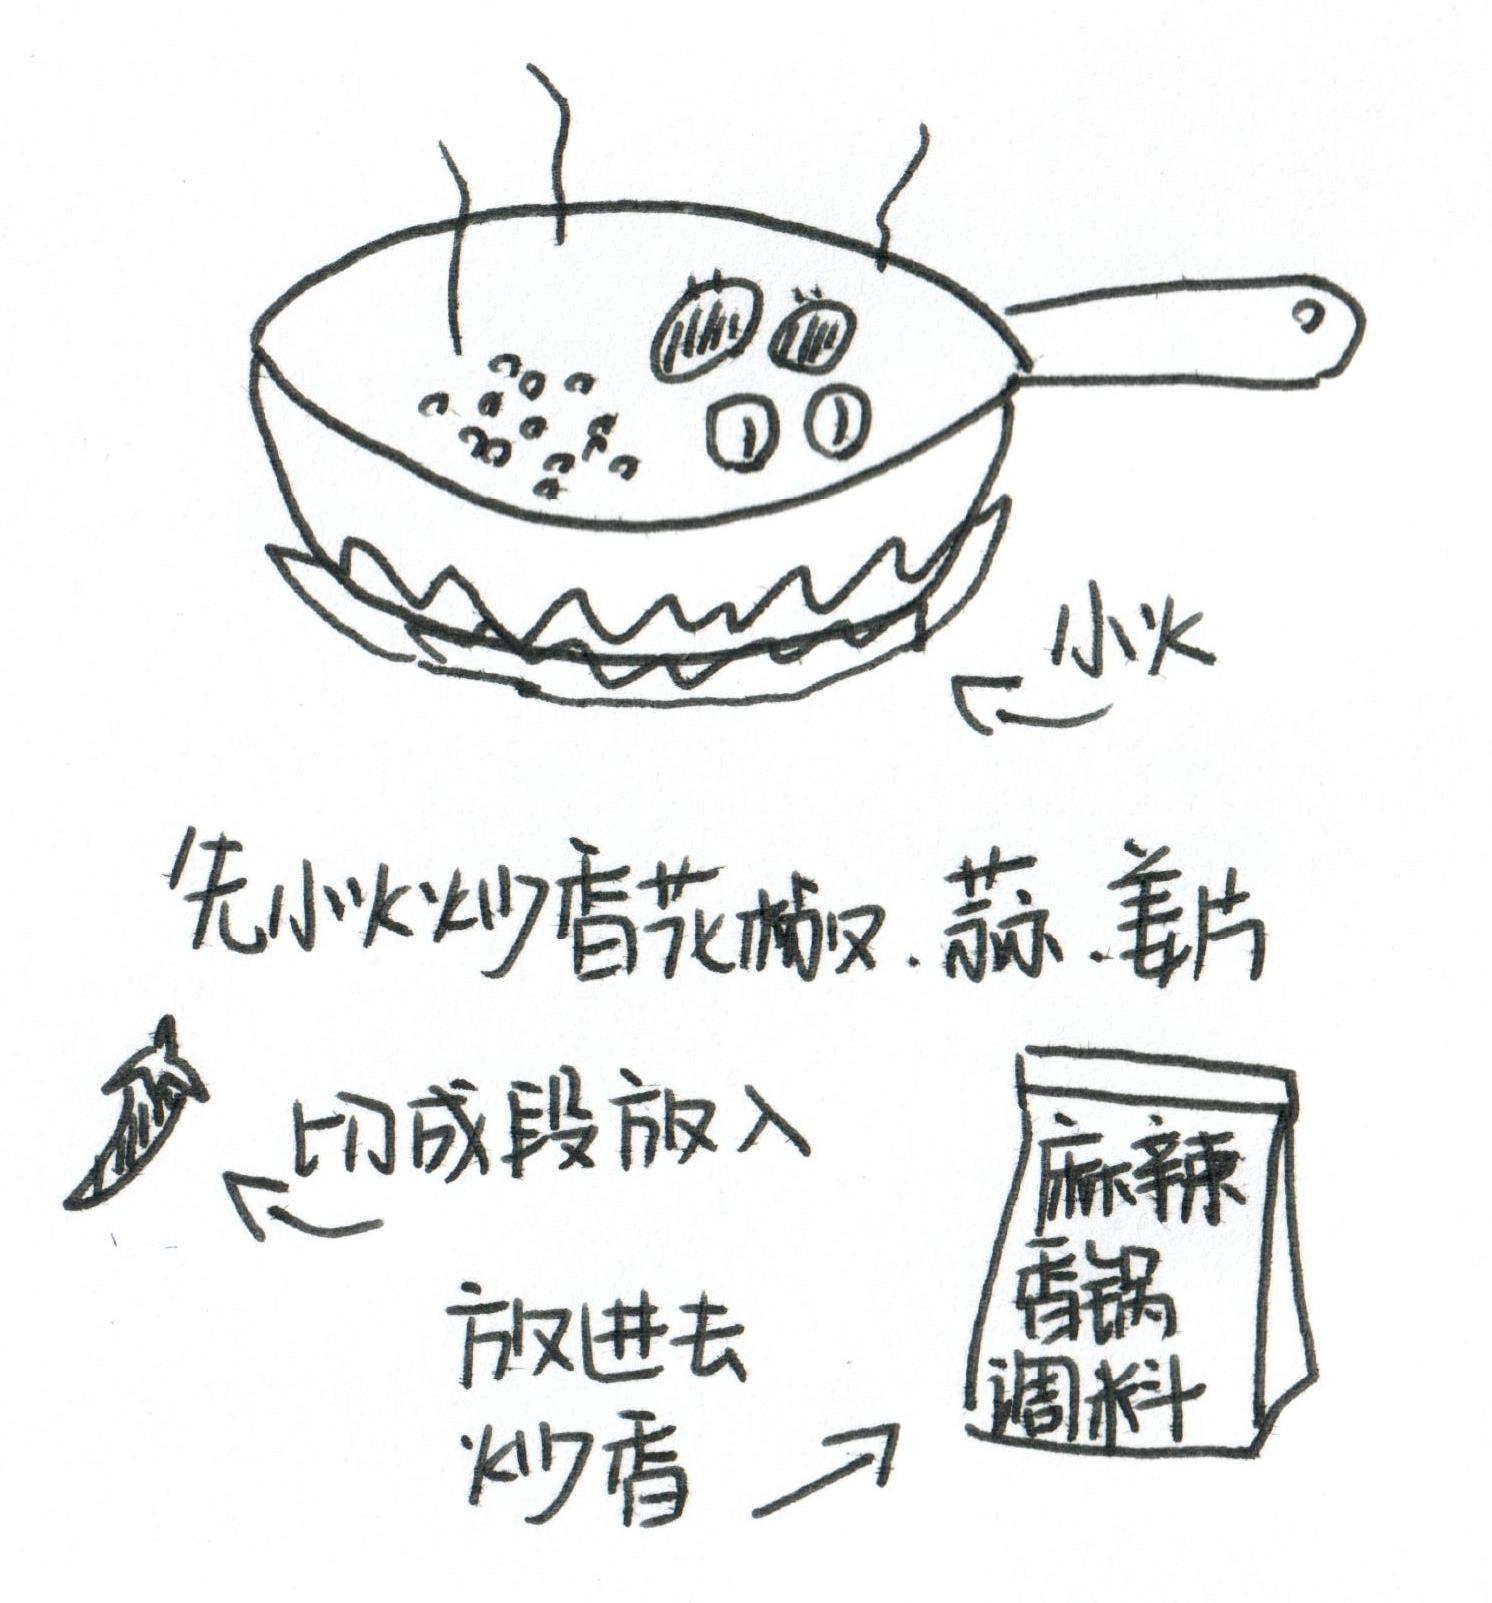 小火
先小火炒香花椒.蒜.姜片
切成段放入
放进去
炒香
麻辣
香锅
调料